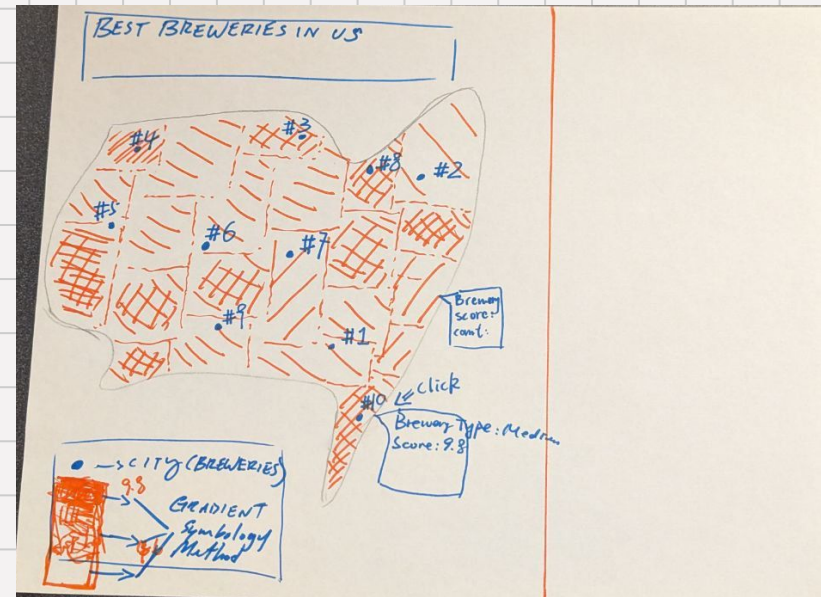 BEST BREWERIES IN US
#4
#3
#8
#2
#5
#6
#7
#9
#1
Brewery
score:
count:
#10
click
Brewery Type: Medium
Score: 9.8
CITY (BREWERIES)
9.8
GRADIENT
Symbology
Method